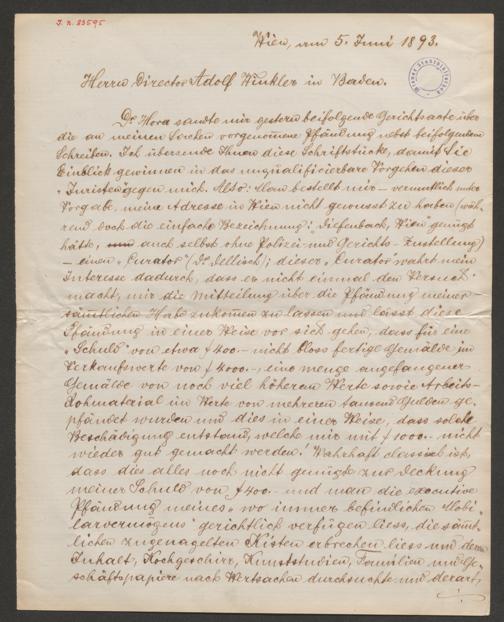 J. N. 83595
Wien, am 5. Juni 1893.
Herrn Director Adolf Winkler in Baden.
Dr. Hora sandte mir gestern beifolgende Gerichtsacte über
die an meinen Sachen vorgenommene Pfändung nebst beifolgendem
Schreiben. Ich übersende Ihnen diese Schriftstücke, damit Sie
Einblick gewinnen in das unqualificierbare Vorgehen dieser
"Juristen" gegen mich. Also: Man bestellt mir – vermutlich unter
Vorgabe, meine Adresse in Wien nicht gewusst zu haben (wäh-
rend doch die einfache Bezeichnung: "Diefenbach, Wien" genügt
hätte, auch selbst ohne Polizei- und Gerichts-Zustellung)
– einen "Curator" (Dr. ); dieser "Curator" wahrt mein
Interesse dadurch, dass er nicht einmal den Versuch
macht, mir die Mitteilung über die Pfändung meiner
sämtlichen Habe zukommen zu lassen und lässt diese
Pfändung in einer Weise vor sich gehen, dass für eine
"Schuld" von etwa f 400.– nicht bloss fertige Gemälde im
Verkaufswerte von f 4000.–, eine Menge angefangener
Gemälde von noch viel höherem Werte sowie Arbeits-
Rohmaterial im Werte von mehreren tausend Gulden ge-
pfändet wurden und dies in einer Weise, dass solche
Beschädigung entstand, welche mir mit f 1000.– nicht
wieder gut gemacht werden. Wahrhaft classisch ist,
dass dies alles noch nicht genügte zur Deckung
meiner Schuld von f 400.– und man die executive
Pfändung meines "wo immer befindlichen Mobi-
larvermögens" gerichtlich verfügen liess, die sämt-
lichen zugenagelten Kisten erbrechen liess und deren
Inhalt, Kochgeschirr, Kunststudien, Familien und Ge-
schäftspapiere nach Wertsachen durchsuchte und derart